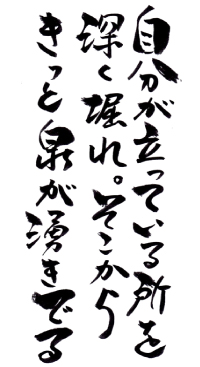 自分が立っている所を
深く堀れ。そこから
きっと泉が湧きでる